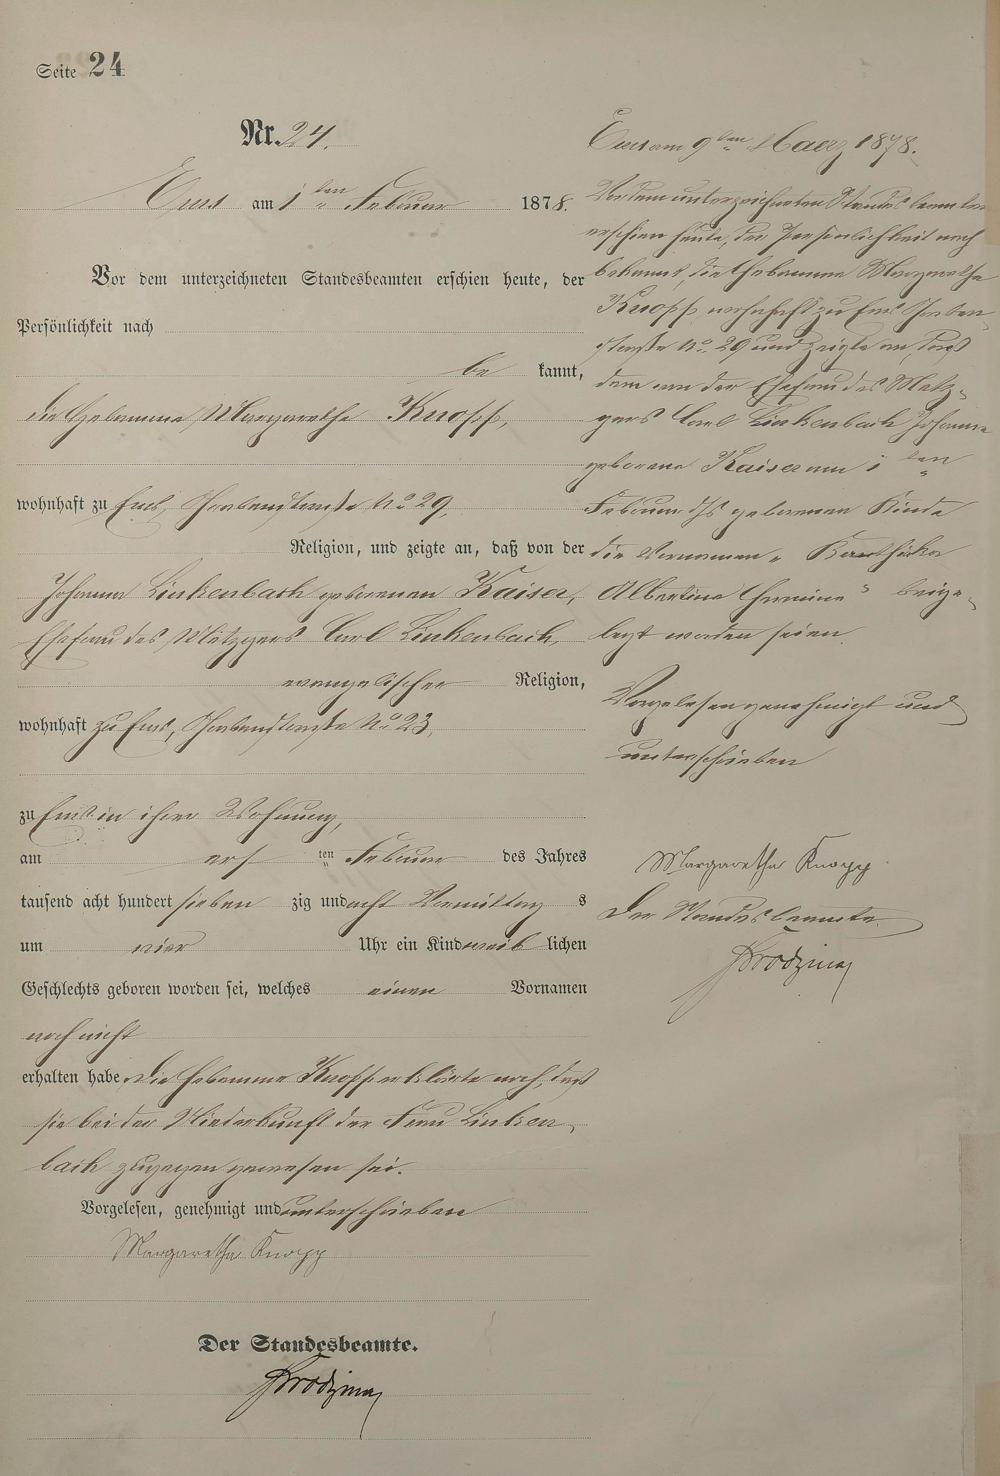 Seite 24
Nr. 24.
Ems am 1ten Februar 1878.
Vor dem unterzeichneten Standesbeamten erschien heute, der
Persönlichkeit nach
be kannt,
die Hebamme Margarethe Knopp,
wohnhaft zu Ems, Grabenstraße No 29,
Religion, und zeigte an, daß von der
Johanna Linkenbach geborenen Kaiser,
Ehefrau des Metzgers Carl Linkenbach,
evangelischer Religion,
wohnhaft zu Ems, Grabenstraße No 23,
zu Ems in ihrer Wohnung,
am ersten Februar des Jahres
tausend acht hundert sieben zig und acht Vormittag s
um vier Uhr ein Kind weib lichen
Geschlechts geboren worden sei, welches einen Vornamen
noch nicht
erhalten habe. Die Hebamme Knopp erklärte noch, daß
sie bei der Niederkunft der Frau Linken
bach zugegen gewesen sei.
Vorgelesen, genehmigt und unterschrieben
Margaretha Knopp
Der Standesbeamte.
Ems am 9ten Maerz 1878.
Vor dem unterzeichneten Standesbeamten
erschien heute, der Persönlichkeit nach
bekannt, die Hebamme Margarethe
Knopp, wohnhaft zu Ems Graben
straße No. 29 und zeigte an, daß
dem von der Ehefrau des Metz-
gers Carl Linkenbach Johanna
geborene Kaiser am 1ten
Februar geborenen Kinde
die Vornamen „
Albertine Hermine" beige-
legt worden seien.
Vorgelesen genehmigt und
unterschrieben
Margaretha Knopp
Der Standesbeamte.